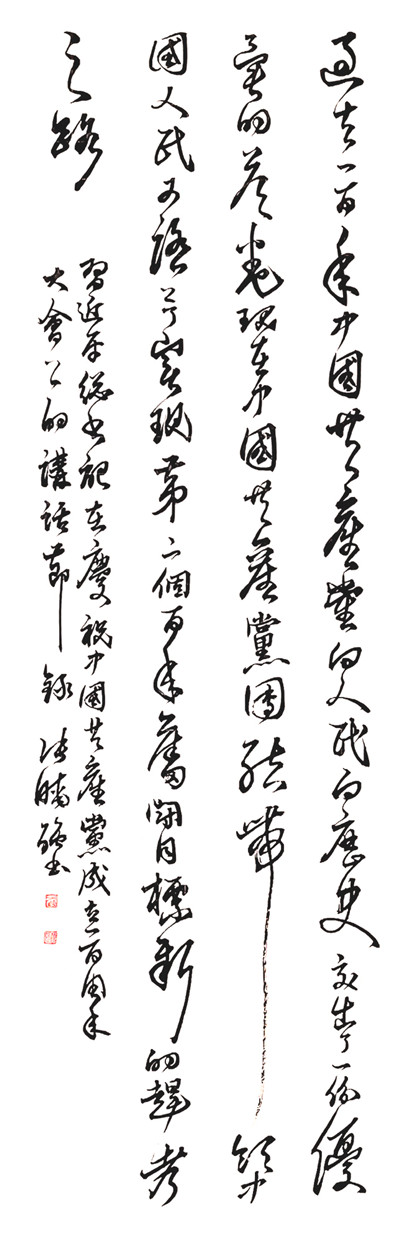 過去一百年中國共產黨向人民向歷史交出了一份優
異的答卷現在中國共產黨團結帶領中
國人民又踏上了實現第二個百年奮鬪目標新的趕考
之路
習近平總書記在慶祝中國共產黨成立一百周年
大會上的講話節錄